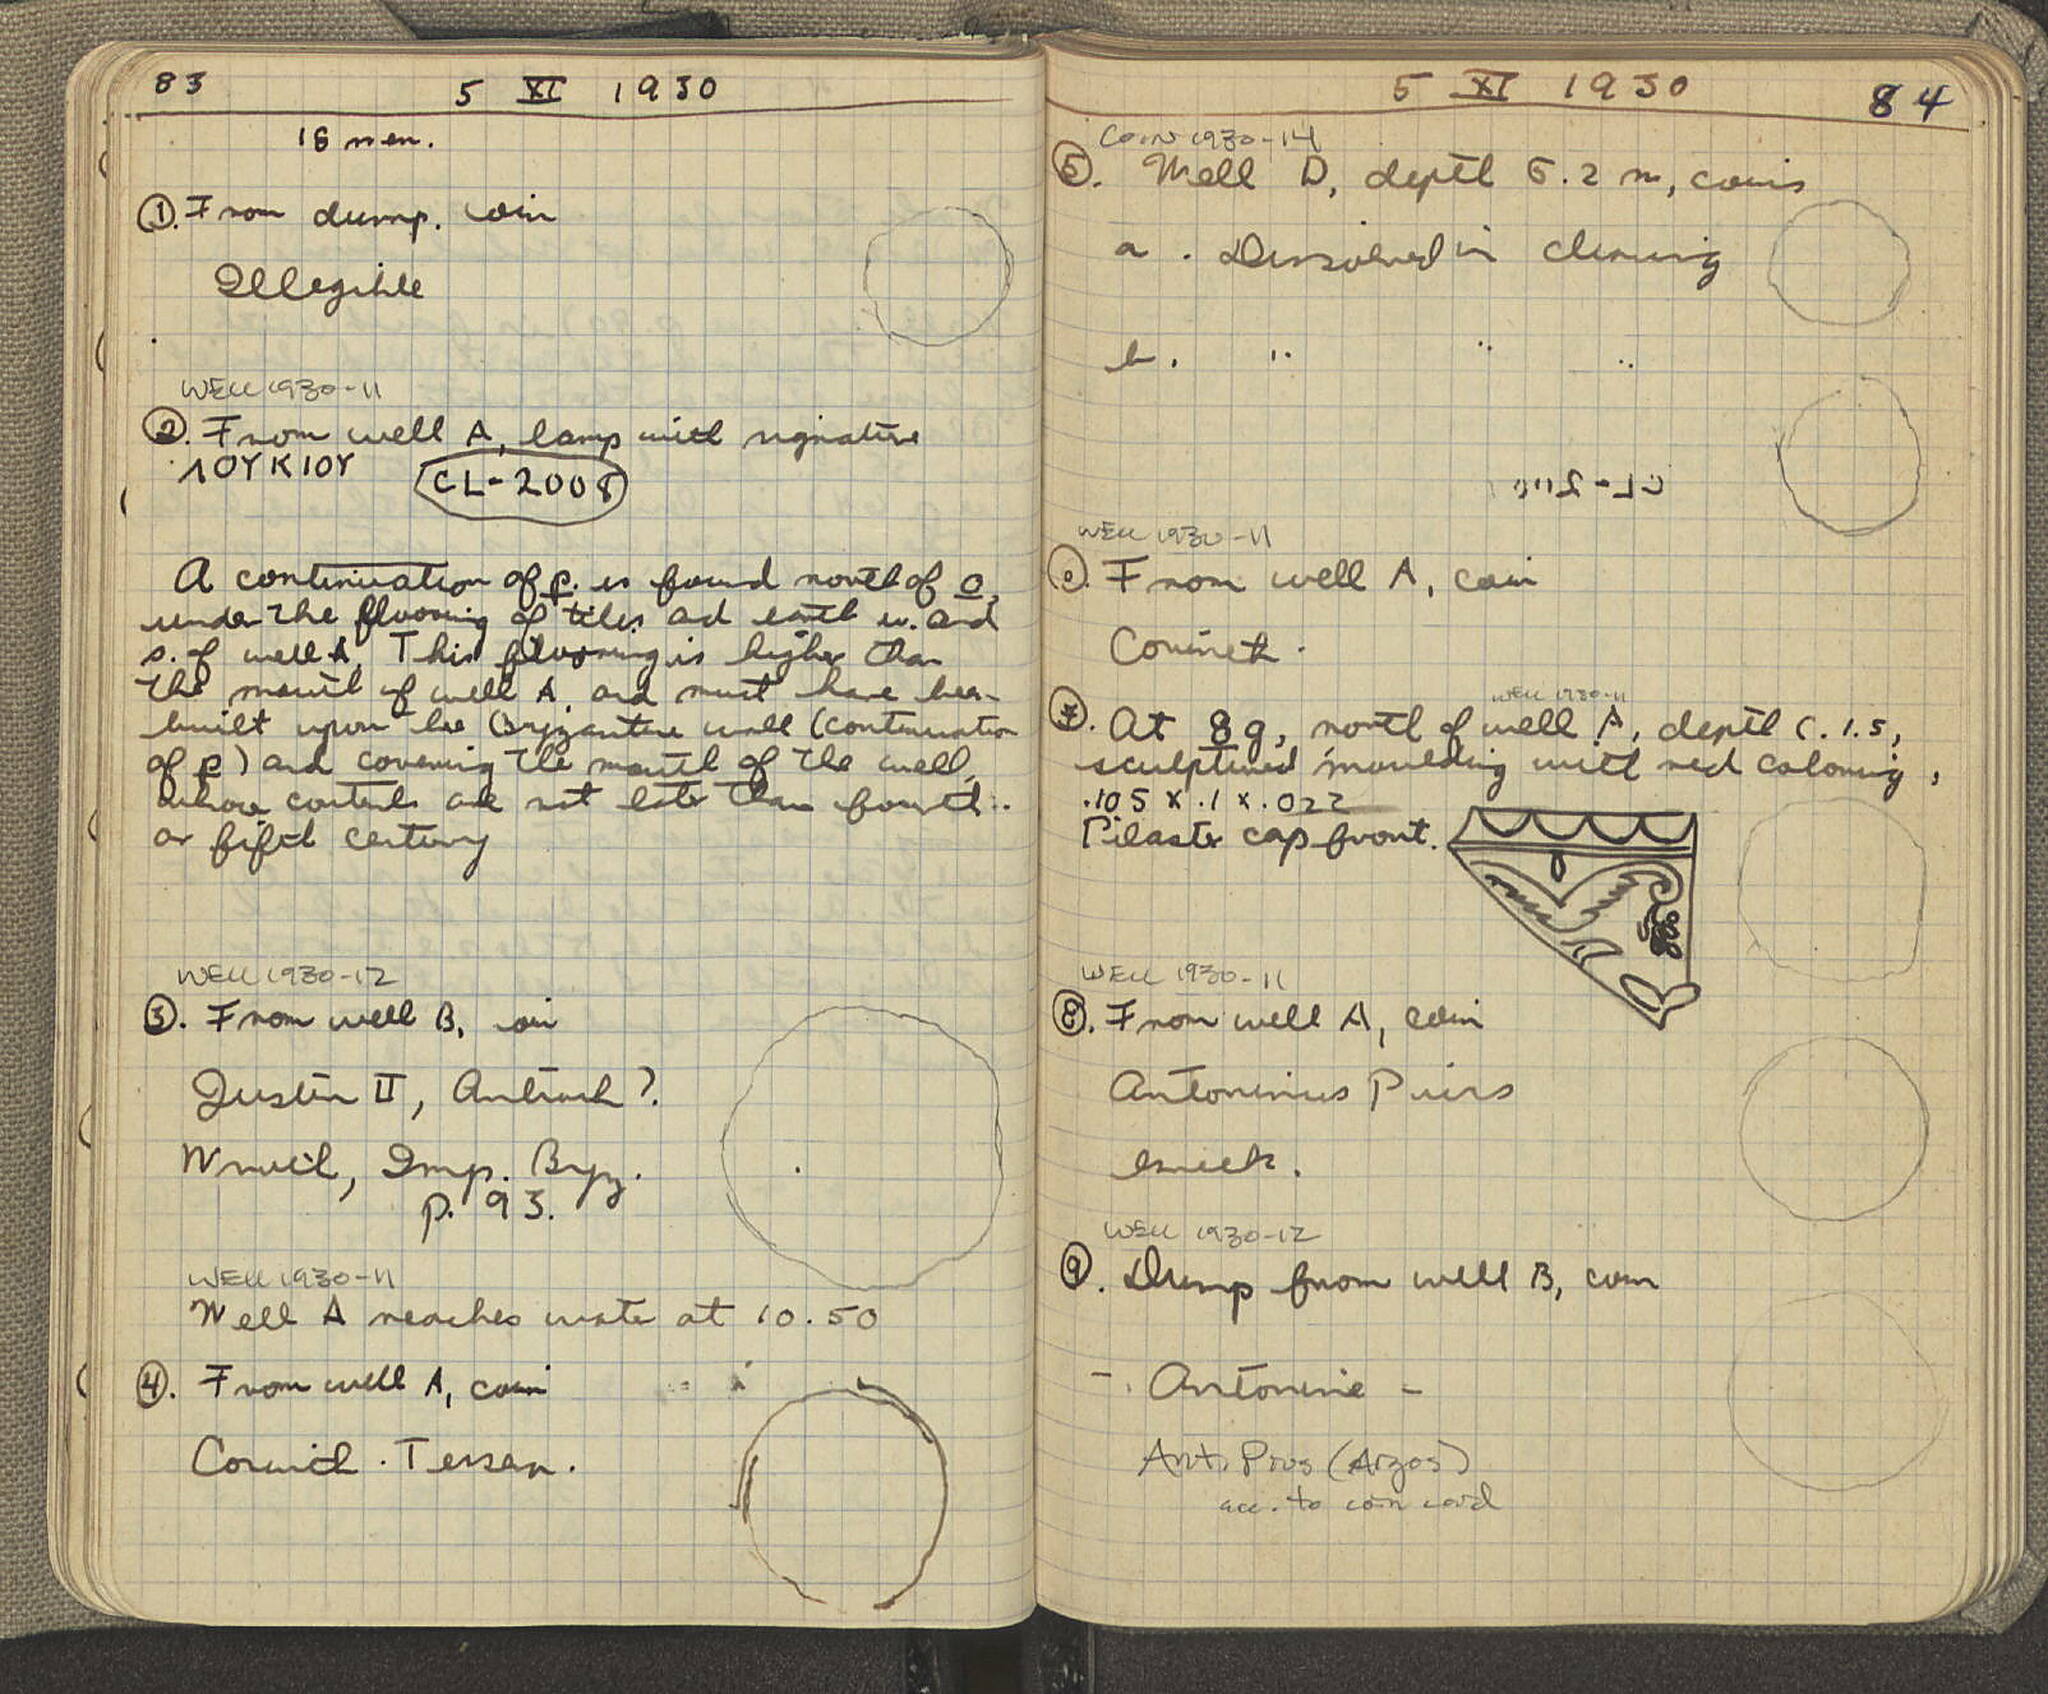 83
5 XI 1930
18 men.
①. From dump. coin
Illegible
WELL 1930-11
②. From well A, lamp with signature
ΛΟΥΚΙΟΥ
CL-2008
A continuation of p. is found north of o,
under the flooring of tiles and earth w. and
s. of well A. This flooring is higher than
the mouth of well A, and must have been
built upon the Byzantine wall (continuation
of p) and covering the mouth of the well,
whose contents are not later than fourth
or fifth century
WELL 1930-12
③. From well B, coin
Justin II, Antioch?
Wroth, Imp. Byz.
p. 93.
WELL 1930-11
Well A reaches water at 10.50
④. From well A, coin
Corinth.
5 XI 1930
84
COIN 1930-14
⑤. Well D, depth 5.2 m, coins
a. Dissolved in cleaning
b. " " "
WELL 1930-11
⑥. From well A, coin
Corinth.
WELL 1930-11
⑦. At 8g, north of well A, depth c. 1.5,
sculptured moulding with red coloring,
.105 x .1 x .022
Pilaster cap front.
WELL 1930-11
⑧. From well A, coin
Antoninus Pius
WELL 1930-12
⑨. Dump from well B, coin
-. Antonine -
Ant. Pius (Argos)
acc. to coin card